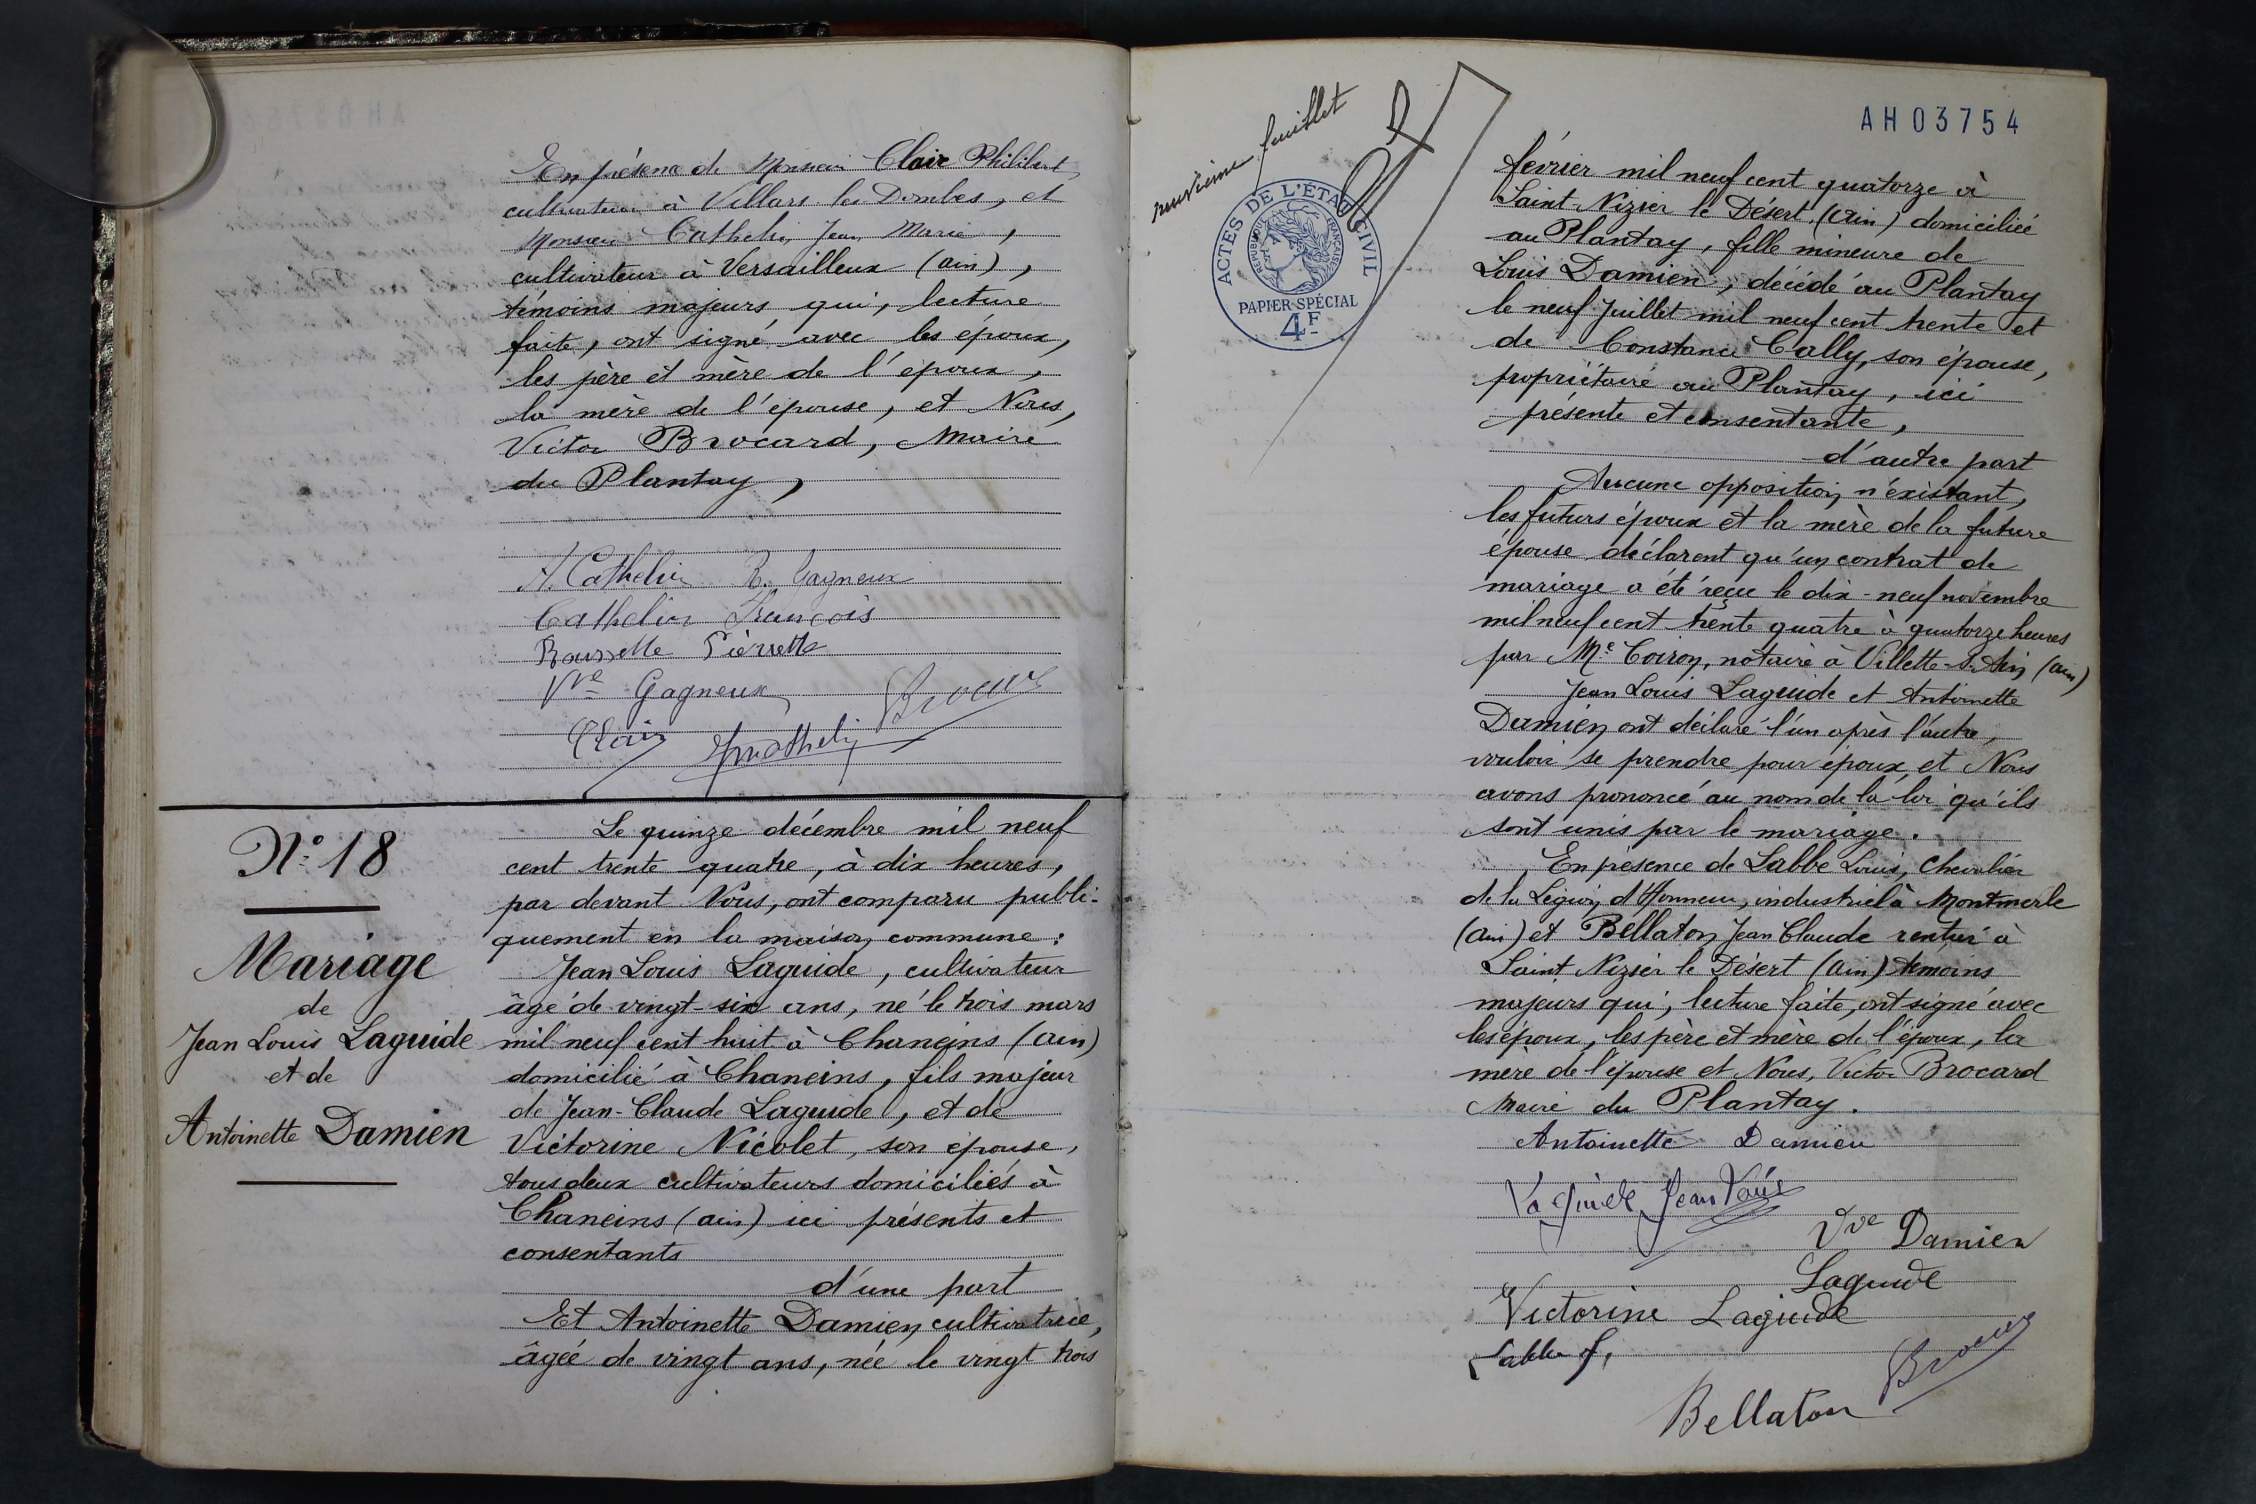 En présence de Monsieur Clair Philibert,
cultivateur à Villars les Dombes, et
Monsieur Cathelin Jean Marie,
cultivateur à Versailleux (ain),
témoins majeurs qui, lecture
faite, ont signé avec les époux,
les père et mère de l'époux,
la mère de l'épouse, et Nous,
Victor Brocard, Maire
du Plantay,
A. Cathelin R. Gagneux
Cathelin François
Rousselle Pierrette
Vve Gagneux
Clair Brocard
N° 18
Mariage
de
Jean Louis Laguide
et de
Antoinette Damien
Le quinze décembre mil neuf
cent trente quatre, à dix heures,
par devant Nous, ont comparu publi-
quement en la maison commune :
Jean Louis Laguide, cultivateur
âgé de vingt-six ans, né le trois mars
mil neuf cent huit à Chaneins (ain)
domicilié à Chaneins, fils majeur
de Jean-Claude Laguide, et de
Victorine Nicolet, son épouse,
tous deux cultivateurs domiciliés à
Chaneins (ain) ici présents et
consentants
d'une part
Et Antoinette Damien cultivatrice,
âgée de vingt ans, née le vingt trois
neuvième feuillet
ACTES DE L'ÉTAT CIVIL
REPUBLIQUE FRANÇAISE
PAPIER SPÉCIAL
4F
AH03754
février mil neuf cent quatorze à
Saint Nizier le Désert (ain) domiciliée
au Plantay, fille mineure de
Louis Damien, décédé au Plantay
le neuf Juillet mil neuf cent trente et
de Constance Cally, son épouse,
propriétaire au Plantay, ici
présente et consentante,
d'autre part
Aucune opposition n'existant,
les futurs époux et la mère de la future
épouse déclarent qu'un contrat de
mariage a été reçu le dix-neuf novembre
mil neuf cent trente quatre à quatorze heures
par Me Coiron, notaire à Villette-s-Ain (ain)
Jean Louis Laguide et Antoinette
Damien ont déclaré l'un après l'autre,
vouloir se prendre pour époux et Nous
avons prononcé au nom de la loi qu'ils
sont unis par le mariage.
En présence de Labbe Louis, Chevalier
de la Légion d'Honneur, industriel à Montmerle
(ain) et Bellaton Jean Claude rentier à
Saint Nizier le Désert (ain) témoins
majeurs qui, lecture faite, ont signé avec
les époux, les père et mère de l'époux, la
mère de l'épouse et Nous, Victor Brocard
Maire du Plantay.
Antoinette Damien
Laguide Jean Louis
Vve Damien
Laguide
Victorine Laguide
Labbe L.
Brocard
Bellaton